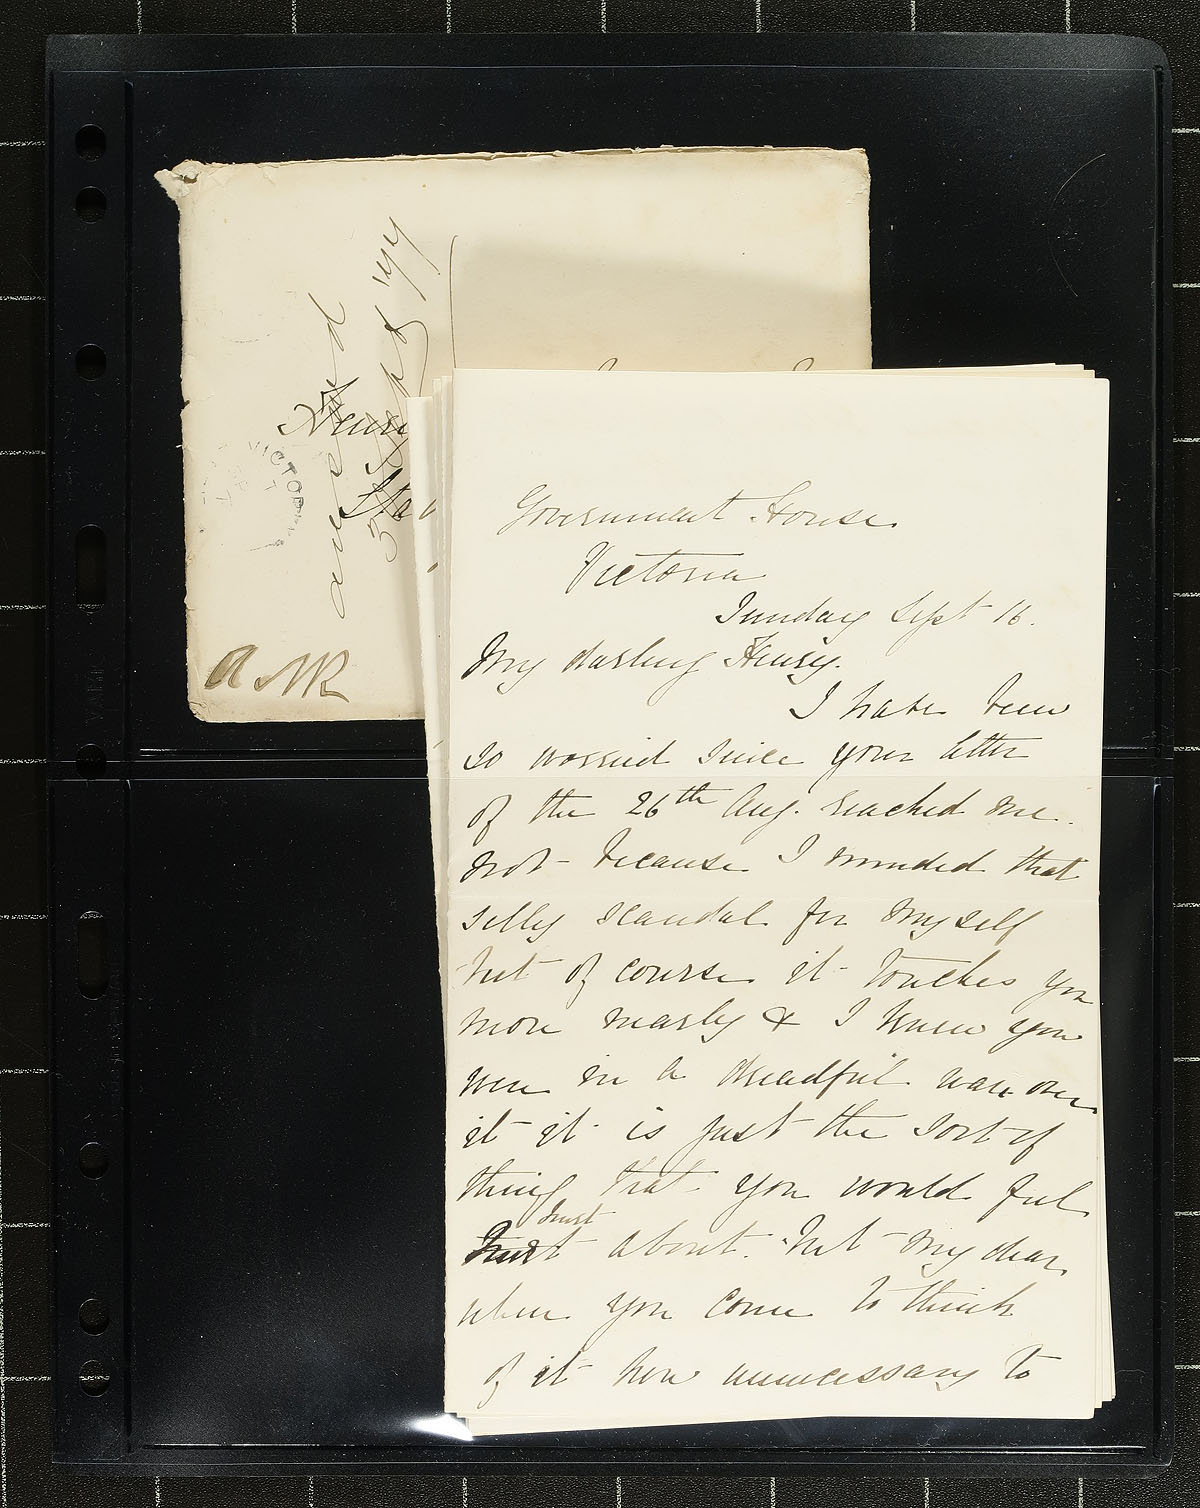 answered
5 '77
Henr
Sta
VICTORIA
Government House
Victoria
Sunday Sept 16.
My darling Henry.
I have been
so worried since your letter
of the 26th Aug. reached me.
not because I minded that
silly scandal for myself
but of course it touches you
more nearly & I knew you
were in a dreadful way over
it it is just the sort of
thing that you would feel
hurt
about. but my dear
when you come to think
of it how unnecessary to